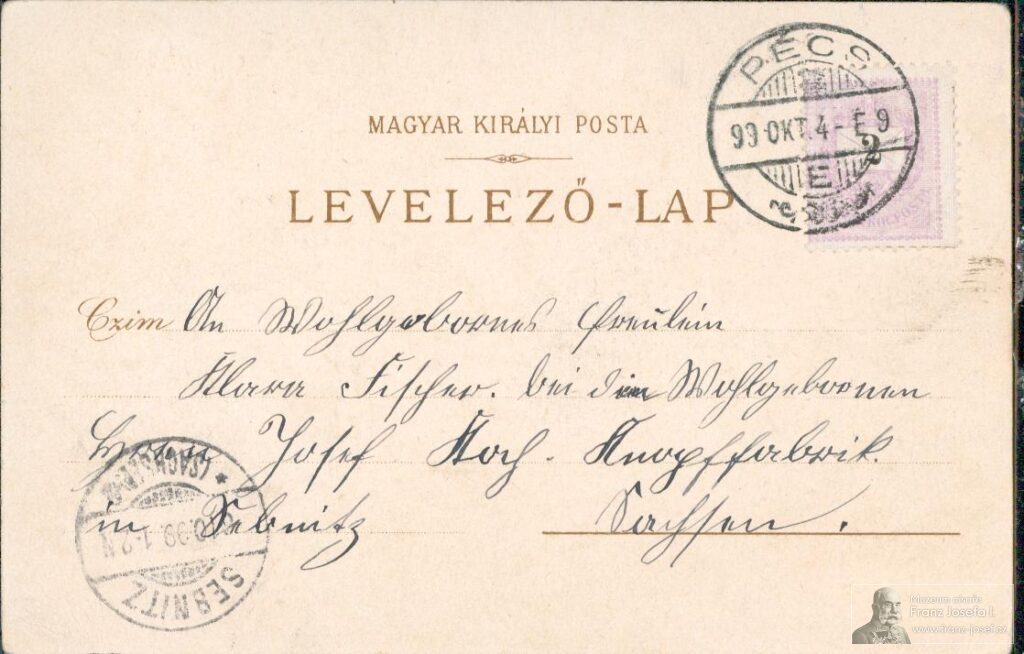 PÉCS
99 OKT. 4 - É 9
E
2
MAGYAR KIRÁLYI POSTA
LEVELEZŐ-LAP
Czim An Wohlgebornes Freulein
Klara Fischer. bei dem Wohlgebornen
Herrn Josef Koch. Knopffabrik.
in Sebnitz Sachsen.
(SACHSEN) *
99. 1-2 N
SEBNITZ
Muzeum císaře
Franz Josefa I.
www.franz-josef.cz